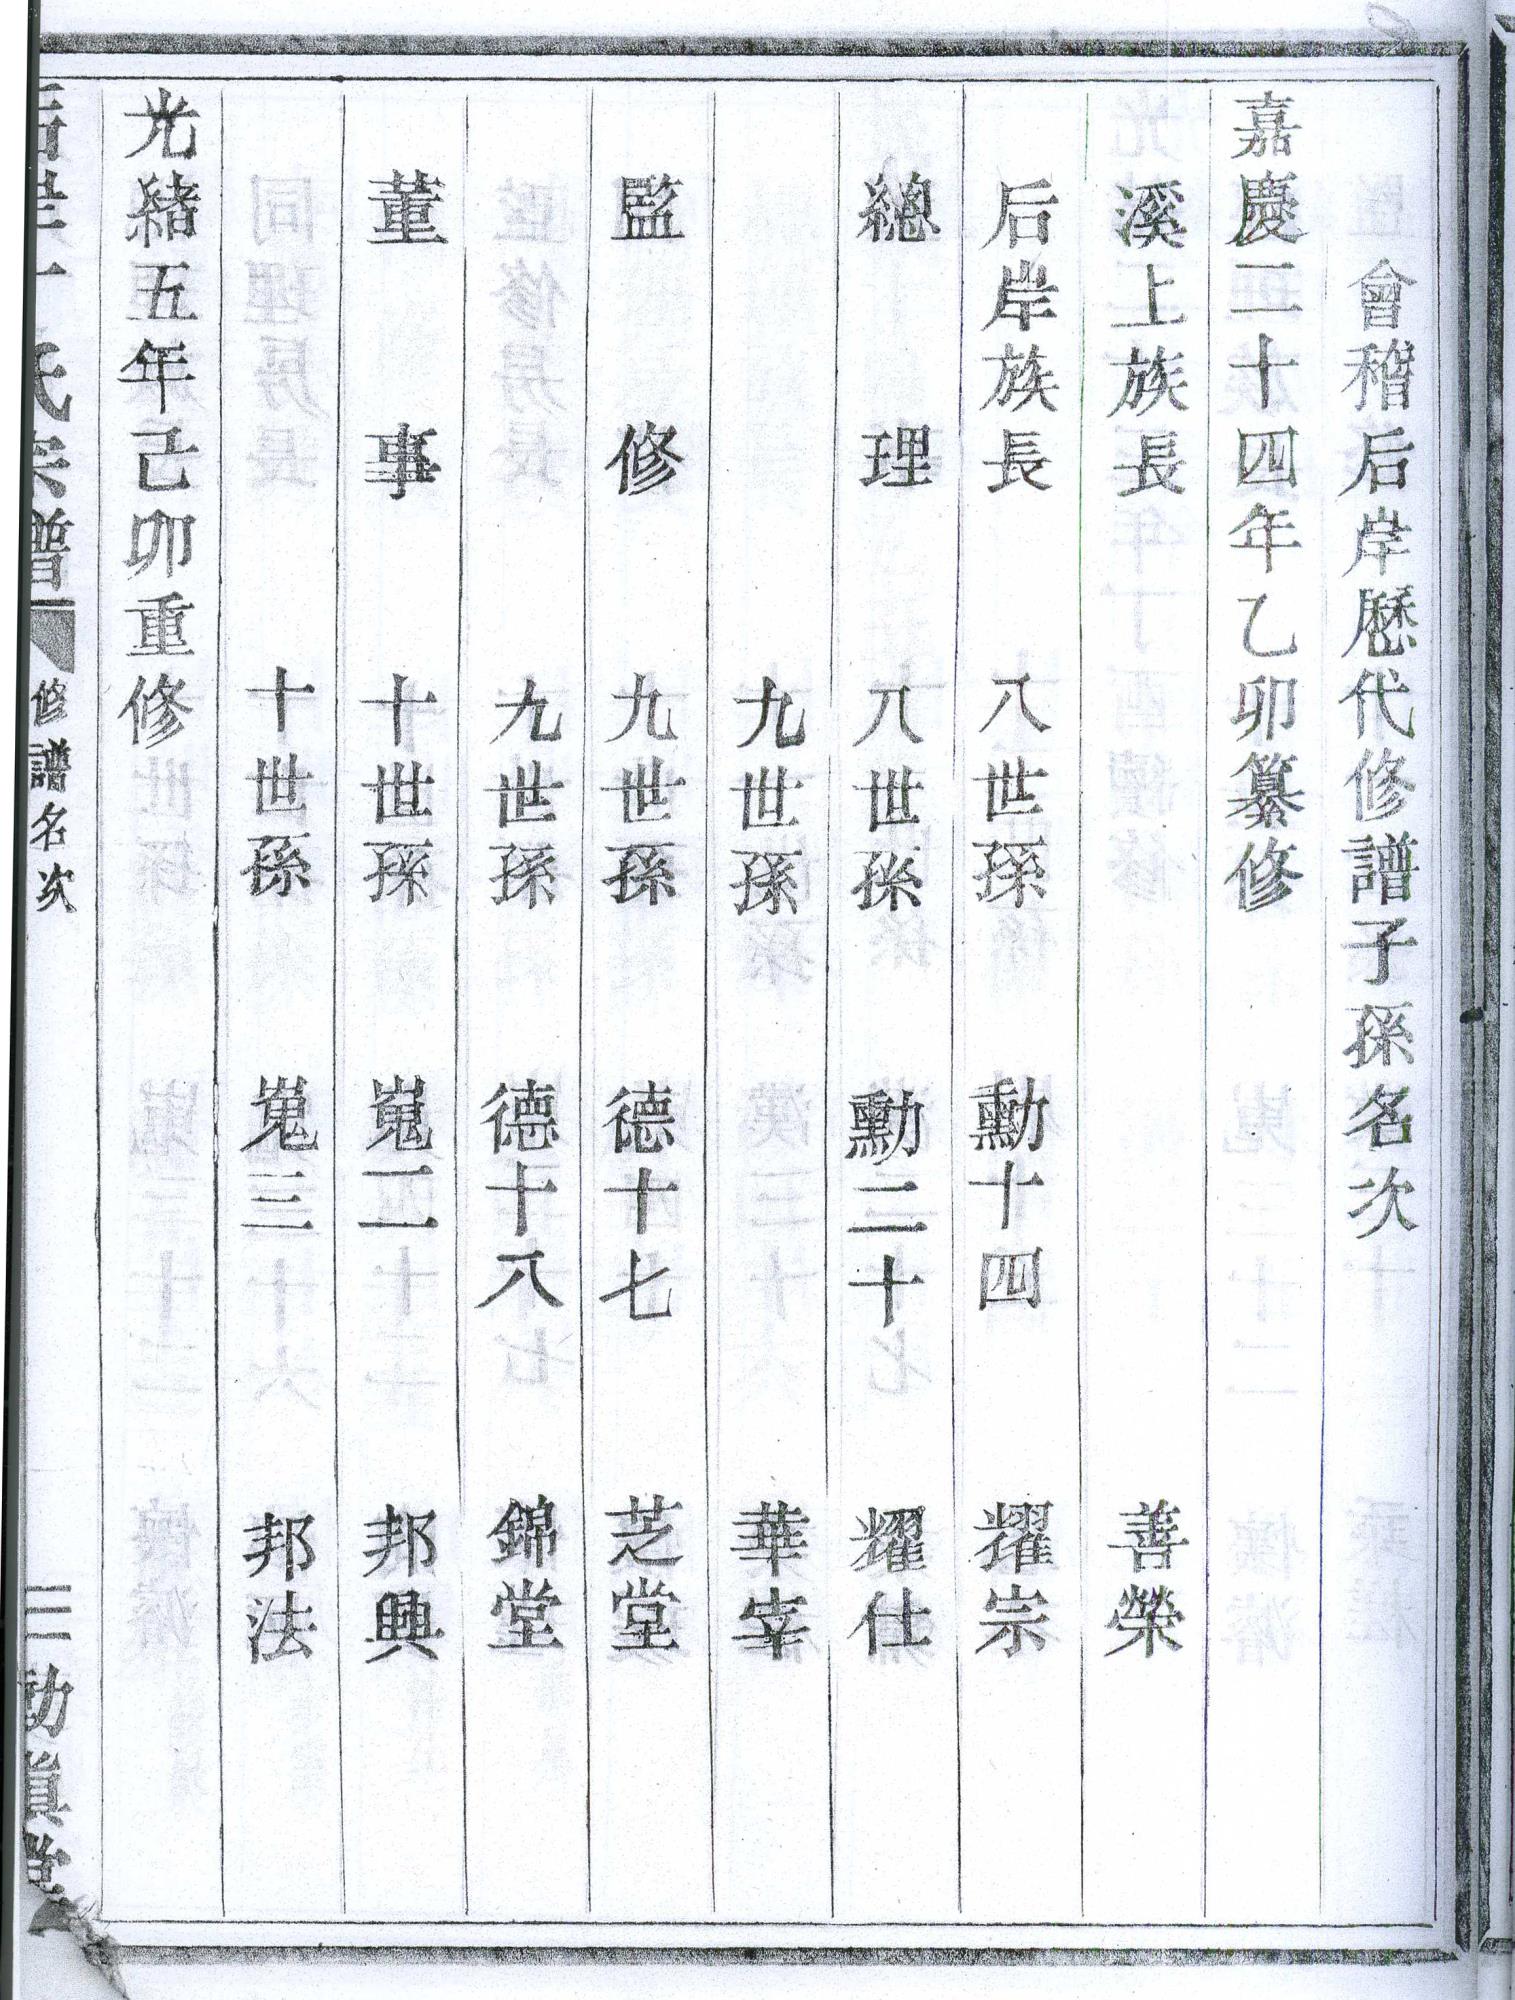 會稽后岸歷代修譜子孫名次
嘉慶二十四年乙卯纂修
溪上族長 善榮
后岸族長 八世孫 勳十四 耀宗
總理 八世孫 勳二十 耀仕
九世孫 華宰
監修 九世孫 德十七 芝堂
九世孫 德十八 錦堂
董事 十世孫 嵬二 邦興
十世孫 嵬三 邦法
光緒五年己卯重修
氏宗譜 修譜名次 三